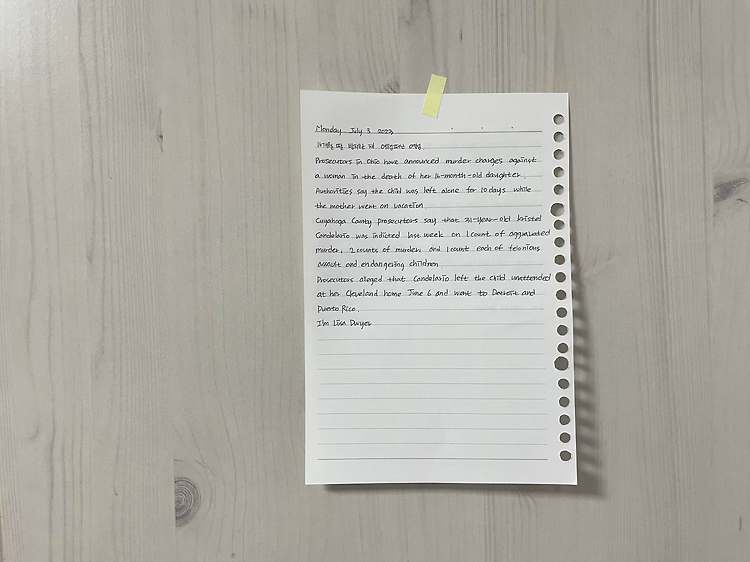 Monday July 3 2023
16개월 딸 방치한 채 여행
Prosecutors in Ohio have announced murder charges against
a woman in the death of her 16-month-old daughter.
Authorities say the child was left alone for 10 days while
the mother went on vacation.
Cuyahoga County prosecutors say that 31-year-old Kristel
Candelario was indicted last week on 1 count of aggravated
murder, 2 counts of murder, and 1 count each of felonious
assault and endangering children.
Prosecutors alleged that Candelario left the child unattended
at her Cleveland home June 6 and went to Detroit and
Puerto Rico.
I'm Lisa Dwyer